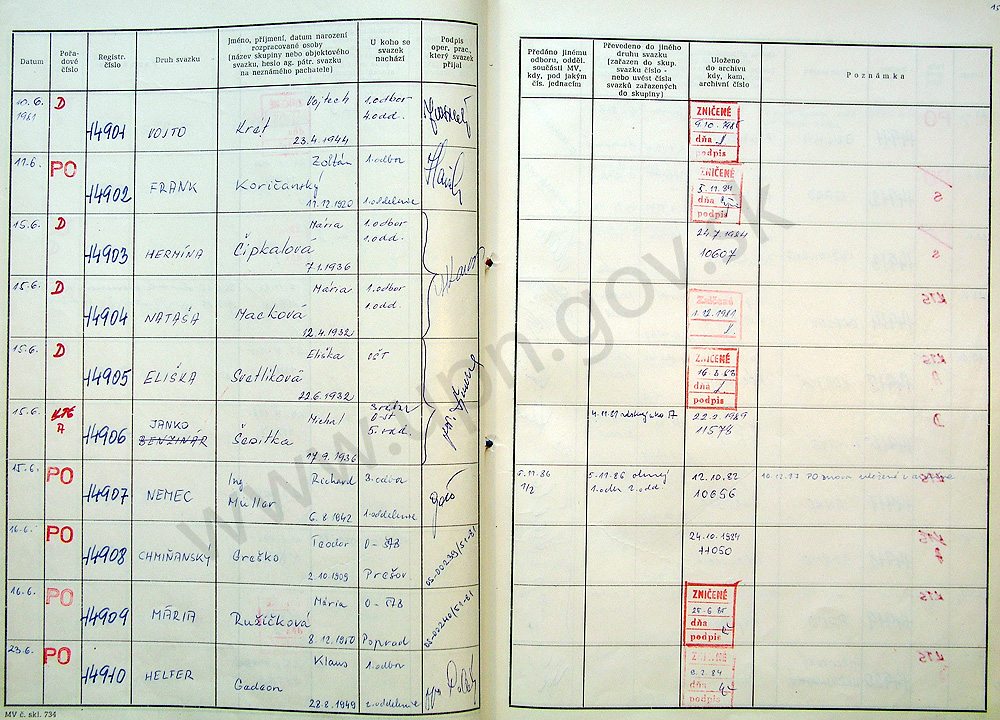 Datum
Pořadové číslo
Registr. číslo
Druh svazku
Jméno, příjmení, datum narození
rozpracované osoby
(název skupiny nebo objektového
svazku, heslo ag. pátr. svazku
na neznámého pachatele)
U koho se
svazek
nachází
Podpis
oper. prac.,
který svazek
přijal
Předáno jinému
odboru, odděl.
součásti MV,
kdy, pod jakým
čís. jednacím
Převedeno do jiného
druhu svazku
(zařazen do skup.
svazku číslo -
nebo uvést čísla
svazků zařazených
do skupiny)
Uloženo
do archivu
kdy, kam,
archivní číslo
Poznámka
10.6. 1981 D 14901 VOJTO Vojtech
Krát
23.4.1944
1.odbor
4.odd.
ZNIČENÉ
dňa
podpis
11.6. PO 14902 FRANK Zoltán
Koričanský
11.12.1920
1.odbor
1.oddelenie
ZNIČENÉ
5.11.84
dňa
podpis
15.6. D 14903 HERMÍNA Mária
Čipkalová
7.1.1936
1.odbor
1.odd.
24.7.1984
10607
15.6. D 14904 NATAŠA Mária
Macková
12.4.1932
1.odbor
1.odd.
Zničené
1.12.1981
15.6. D 14905 ELIŠKA Eliška
Svetlíková
22.6.1932
OČT
ZNIČENÉ
dňa
podpis
15.6. A 14906 JANKO
BENZINÁR
Michal
Šesitka
17.9.1936
5.odd.
11578
15.6. PO 14907 NEMEC Ing Richard
Müller
6.8.1942
1.oddelenie
5.11.86
1/2
5.11.86
1.odb. 2.odd.
12.10.82
10656
16.6. PO 14908 CHMIŇANSKÝ Teodor
Greško
2.10.1909
Prešov
OS-00239/51-81
24.10.1984
11050
16.6. PO 14909 MÁRIA Mária
Ružičková
8.12.1950
Poprad
OS-00240/51-81
ZNIČENÉ
25-6 85
dňa
podpis
23.6. PO 14910 HELFER Klaus
Gadeon
28.8.1949
1.odbor
2.oddelenie
ZNIČENÉ
dňa
podpis
MV č. skl. 734
www.upn.gov.sk